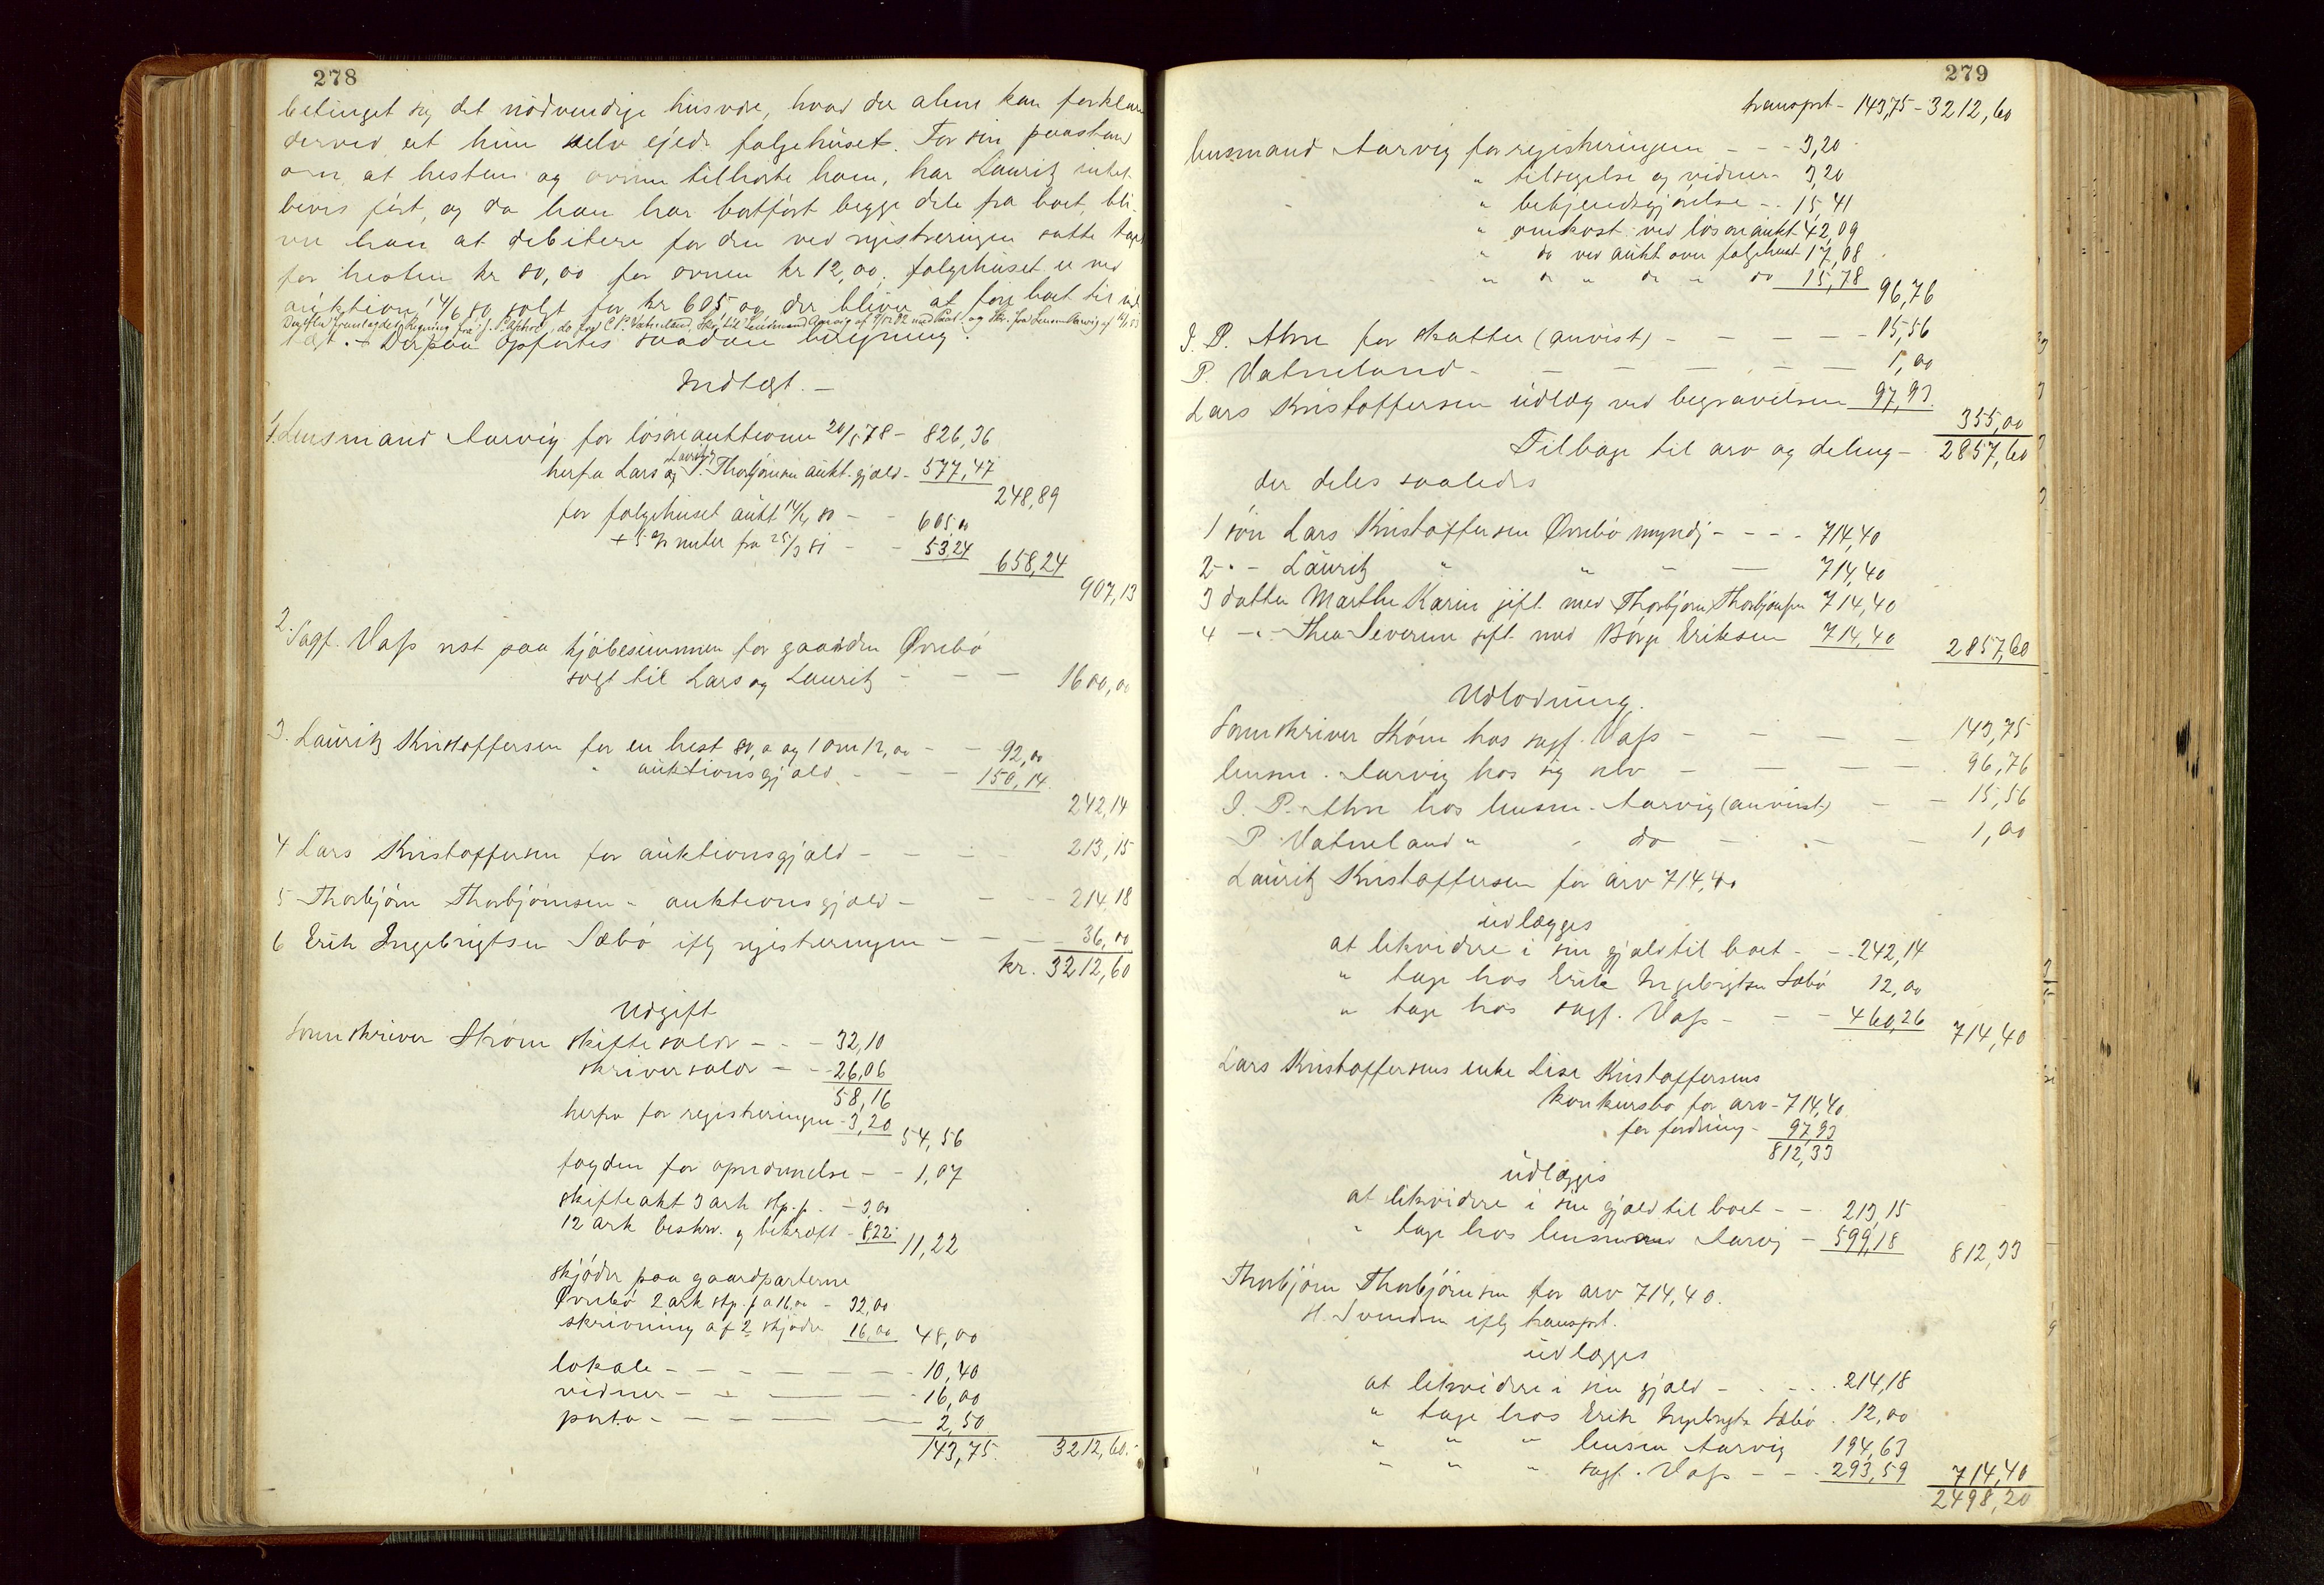 278
betinget sig det nödvendige husvære, hvad der alene kan forklare
derved at hun selv ejede folgehuset. For sin paastand
om at hesten og ovnen tilhörte ham, har Lauritz intet
bevis fört, og da han har bortfört begge dele fra boet, bli-
ver han at debitere for den ved registreringen satte taxt
for hesten kr 80,00 for ovnen kr 12,00. folgehuset er ved
auktion 14/6 80 solgt for kr 605 og der bliver at före boet til ind
tægt. + Derpaa opförtes saadan beregning:
Indtægt. –
1. Lensmand Aarvig for lösöreauktionen 20/5 78 – 826,36
herfra Lars og Lauritz T. Thorbjörnsen aukt. gjæld – 577,47
248,89
for folgehuset aukt 14/6 80 – – 605,00
+ 5 % renter fra 25/3 81 – – 53,24
658,24
907,13
2. Sagf. Vass rest paa kjöbesummen for gaarden Ørnebö
solgt til Lars og Lauritz – – – 1600,00
3. Lauritz Kristoffersen for en hest 80,00 og 1 ovn 12,00 – – 92,00
" auktionsgjæld – – – 150,14
242,14
4 Lars Kristoffersen for auktionsgjæld – – – 213,15
5 Thorbjörn Thorbjörnsen – auktionsgjæld – – – 214,18
6 Erik Ingebrigtsen Sæbö iflg registreringen – – – 36,00
kr. 3212,60
Udgift
Sorenskriver Ström skiftesalær – – – 32,10
skriversalær – – 26,06
58,16
herfra for registreringen – 3,20
54,56
fogden for opnævnelse – – 1,07
skifteakt 3 ark stp. p. – 3,00
12 ark beskr. og bekræft – 8,22
11,22
skjöder paa gaardparterne
Ørnebö 2 ark stp. p a 16,00 – 32,00
skrivning af 2 skjöder 16,00
48,00
lokale – – – – – – 10,40
vidner – – – – – 16,00
porto – – – – – 2,50
143,75. 3212,60.
279
transport – 143,75 – 3212,60
lensmand Aarvig for registreringen – – – 3,20
" tilsigelse og vidner – 3,20
" bekjendtgjörelse – – 15,41
" omkost. ved lösöreaukt 42,09
" do ved aukt over folgehuset 17,08
" do " do " do 15,78
96,76
J. P. Ahre for skatter (anvist) – – – – – 15,56
P. Vatneland – – – – – – 1,00
Lars Kristoffersen udlæg ved begravelsen 97,93
355,00
Tilbage til arv og deling – 2857,60
der deles saaledes
1 sön Lars Kristoffersen Ørnebö myndig – – – – 714,40
2 – " – Lauritz " " – – 714,40
3 datter Marthe Karin gift med Thorbjörn Thorbjörnsen 714,40
4 – " – Thea Severine gift med Börge Eriksen 714,40
2857,60
Udlodning.
Sorenskriver Ström hos sagf. Vass – – – – – 143,75
lensm. Aarvig hos sig selv – – – – 96,76
J. P. Ahre hos lensm. Aarvig (anvist) – – 15,56
P. Vatneland " " do – – – 1,00
Lauritz Kristoffersen for arv 714,40
udlægges
at likvidere i sin gjæld til boet – – 242,14
" tage hos Erik Ingebrigtsen Sæbö 12,00
" tage hos sagf. Vass – – – 460,26
714,40
Lars Kristoffersens enke Lise Kristoffersens
konkursbo for arv – 714,40
for fordring – 97,93
812,33
udlægges
at likvidere i sin gjæld til boet – – 213,15
" tage hos lensmand Aarvig – 599,18
812,33
Thorbjörn Thorbjörnsen for arv 714,40.
H. Svendsen iflg transport.
udlægges
at likvidere i sin gjæld – – – – 214,18
" tage hos Erik Ingebrigts. Sæbö. 12,00
" " " lensm Aarvig 194,63
" " " sagf. Vass – – – 293,59
714,40
2498,20